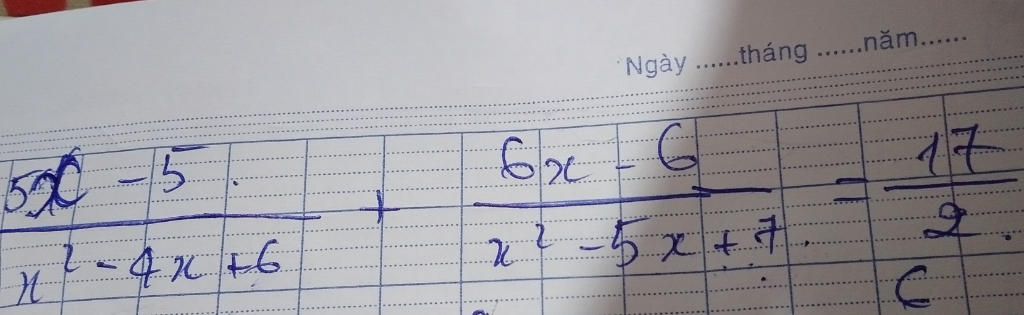 Ngày ......tháng ......năm......
5x - 5 / x² - 4x + 6 + 6x - 6 / x² - 5x + 7 = 17 / 2